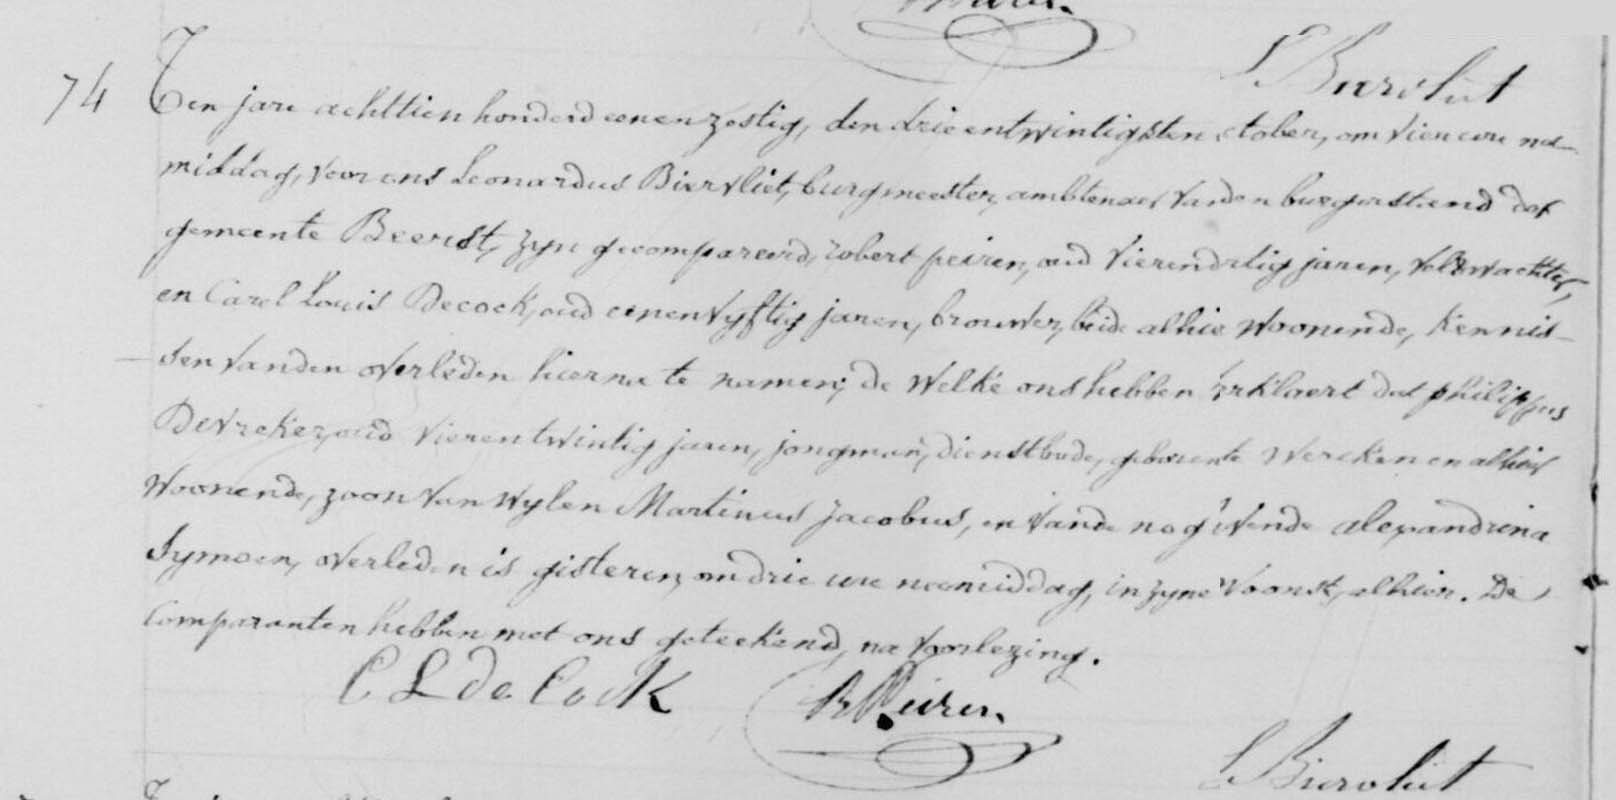 L Biervliet
74 Ten jare achttien honderd eenenzestig, den drieentwintigsten october, om vier ure na-
middag, voor ons Leonardus Biervliet, burgmeester, ambtenaer van den burgerstand der
gemeente Beerst, zyn gecompareerd, robert peiren, oud vierendertig jaren, veldwachter,
en Carel Louis Decock, oud eenenvyftig jaren, brouwer, beide alhier woonende, kennis-
sen van den overleden hierna te namen; de welke ons hebben verklaert dat philippus
Devreker, oud vierentwintig jaren, jongman, dienstbode, geboren te Wercken en alhier
woonende, zoon van wylen Martinus Jacobus, en van de nog levende alexandrina
Symoen, overleden is gisteren, om drie ure naemiddag, in zyne woonst, alhier. De
Comparanten hebben met ons geteekend, na voorlezing.
C L de Cock R Peiren.
L Biervliet